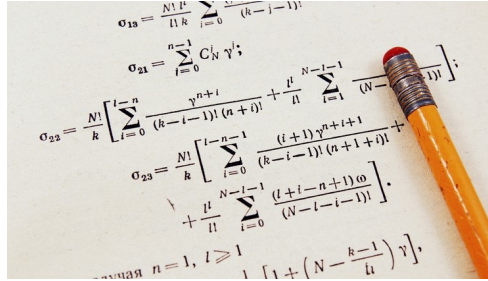 σ₁₃ = N! lˡ / l! k ∑ i=0 (k−i−1)!
σ₂₁ = ∑_{i=0}^{n−1} Cⁱ_N γⁱ;
σ₂₂ = N!/k [ ∑_{i=0}^{l−n} γⁿ⁺ⁱ / (k−i−1)! (n+i)! + lˡ/l! ∑_{i=1}^{N−l−1} / (N− )! ];
σ₂₃ = N!/k [ ∑_{i=0}^{l−n−1} (i+1) γⁿ⁺ⁱ⁺¹ / (k−i−1)! (n+1+i)! +
+ lˡ/l! ∑_{i=0}^{N−l−1} (l+i−n+1) ω / (N−l−i−1)! ].
n=1, l ⩾ 1
[1 + (N − (k−1)/ ) γ],